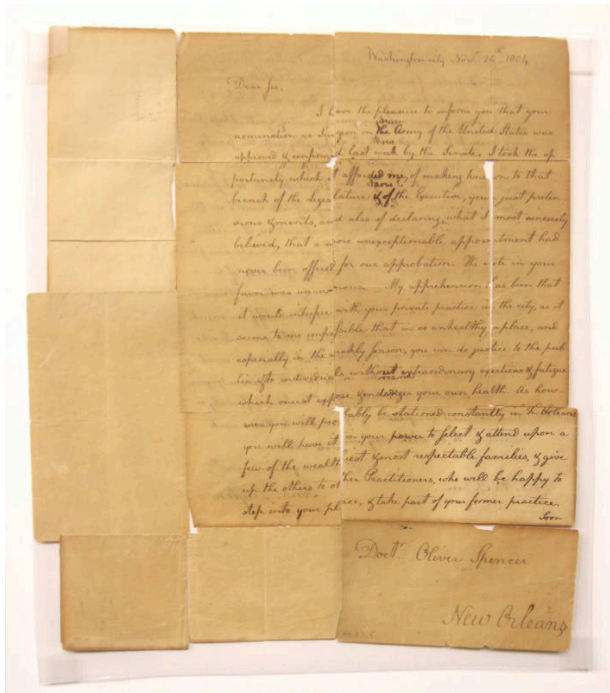 Washington city Nov. 26th 1804
Dear Sir,
I have the pleasure to inform you that your
nomination as Surgeon in the Army of the United States was
approved & confirmed last week by the Senate. I took the op
portunity which it afforded me, of making known to that
branch of the Legislature & of the Executive, your just preten
sions & merits, and also of declaring, what I most sincerely
believed, that a more unexceptionable appointment had
never been offered for our approbation. The vote in your
favor was unanimous. My apprehension has been that
it would interfere with your private practice in the city, as it
seems to me impossible that in so unhealthy a place, and
especially in the sickly season, you can do justice to the pub
lic & to individuals without extraordinary exertions & fatigue
which must expose & endanger your own health. As how
ever you will probably be stationed constantly in N. Orleans
you will have it in your power to select & attend upon a
few of the wealthiest & most respectable families, & give
up the others to other Practitioners, who will be happy to
step into your place, & take part of your former practice.
Soon
Doctr. Oliver Spencer
New Orleans